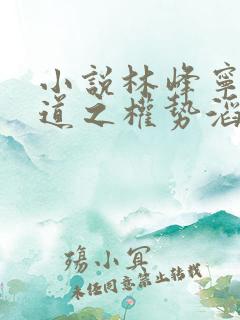 小說林峰寧
道之權勢滔
殤小冥
未經同意禁止轉載